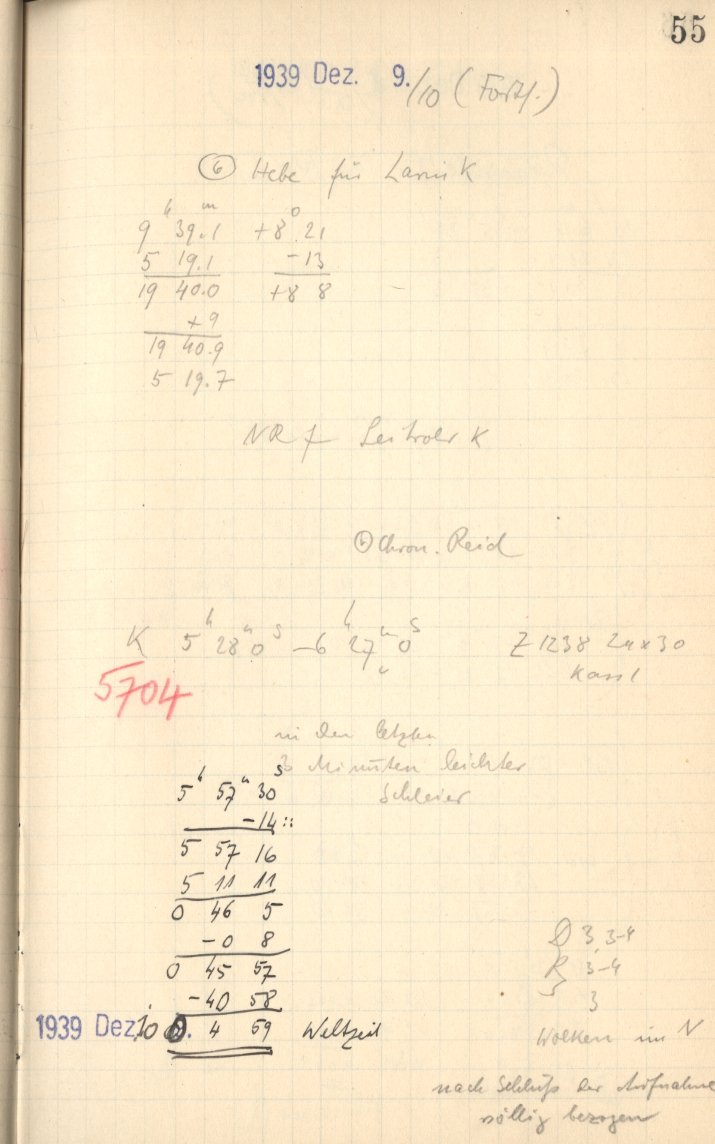 55
1939 Dez. 9./10 (Forts.)
⑥ Hebe für Larink
9ʰ 39.1ᵐ +8° 21
5 19.1 -13
19 40.0 +8 8
+9
19 40.9
5 19.7
NR f Leitrohr K
Chron. Reid
K 5ʰ 28ᵐ 0ˢ – 6ʰ 27ᵐ 0ˢ Z 1238 24x30
Kass 1
5704
in den letzten
Minuten leichter
Schleier
5ʰ 57ᵐ 30ˢ
-14::
5 57 16
5 11 11
0 46 5
-0 8
0 45 57
-40 58
1939 Dez. 10 0. 4 59 Weltzeit
D 3, 3-4
R 3-4
S 3
Wolken im N
nach Schluß der Aufnahme
völlig bezogen